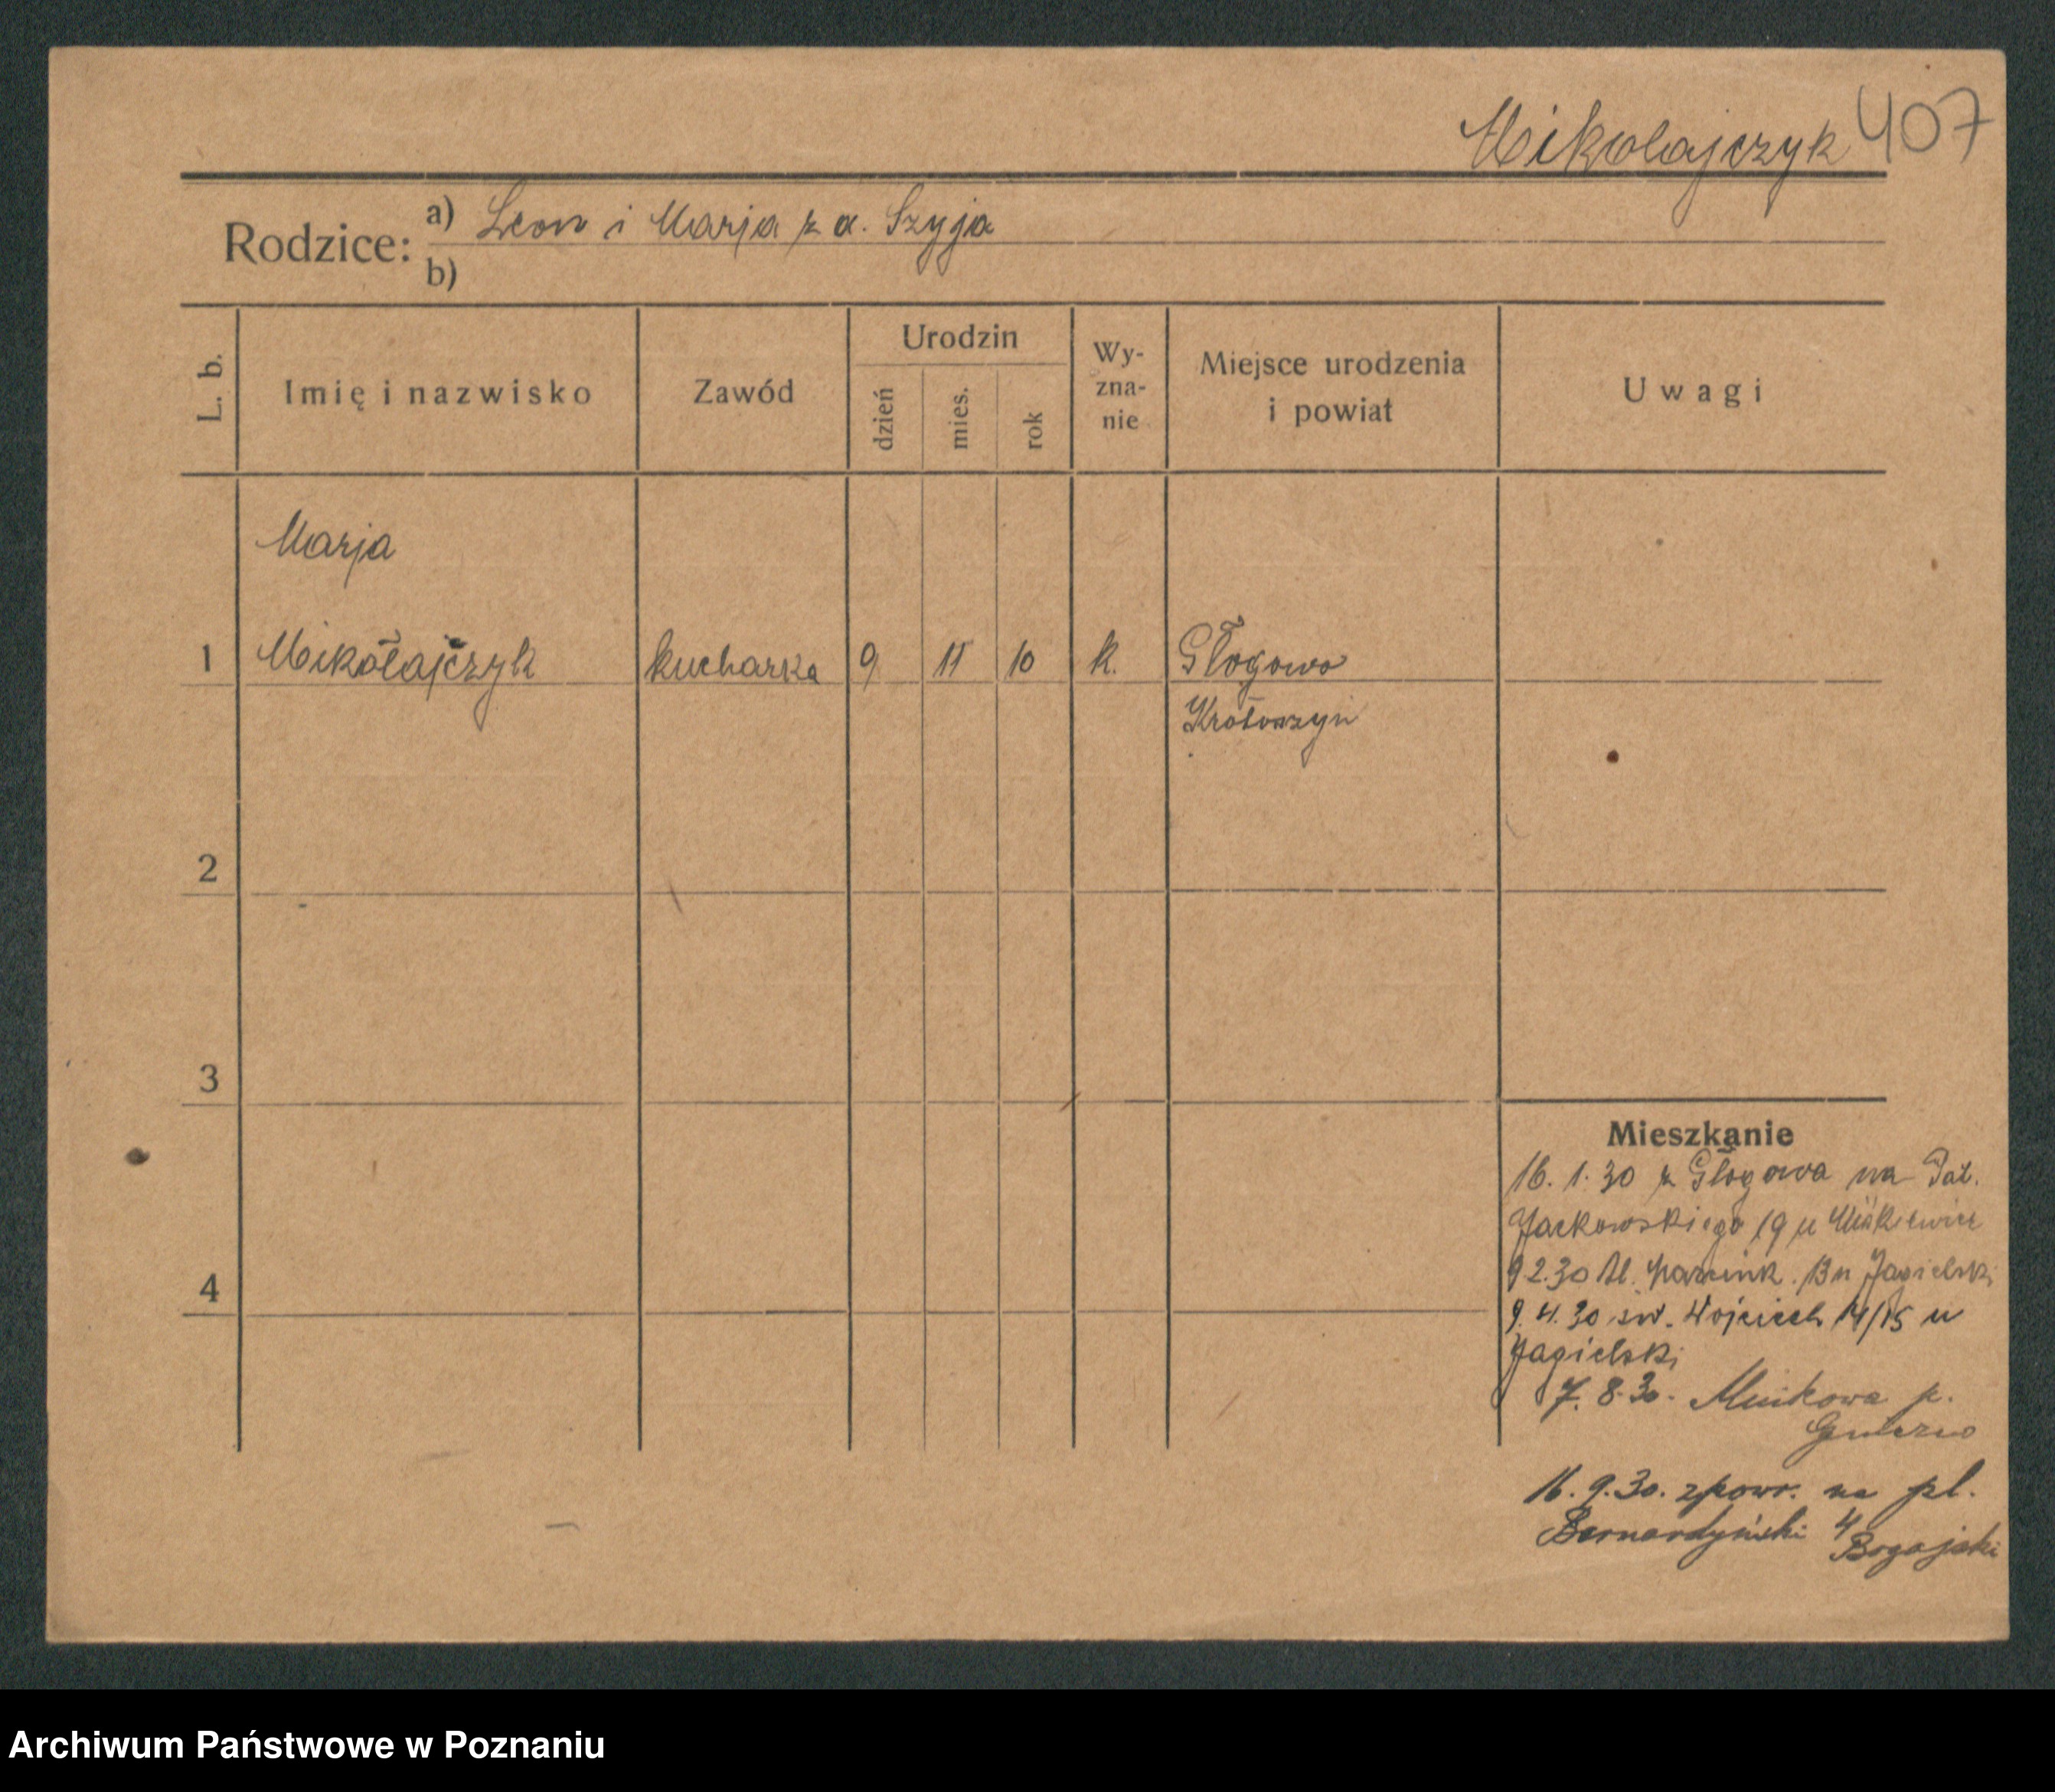 Mikołajczyk 407
Rodzice: a) Leon i Marja z d. Szyja
b)
L. b. Imię i nazwisko Zawód Urodzin dzień mies. rok Wy-zna-nie Miejsce urodzenia i powiat Uwagi
Marja
1 Mikołajczyk kucharka 9 11 10 k. Głogowo
Krotoszyn
2
3
4
Mieszkanie
16. 1. 30 z Głogowa na Pat.
Jackowskiego 19 u
9 2.30 Al. Marcink. 13 u Jagielski
9. 4. 30 św. Wojciech 14/15 u
Jagielski
7. 8. 30. p.
Gniezno
16. 9. 30. zpowr. na pl.
Bernardyński 4
Archiwum Państwowe w Poznaniu